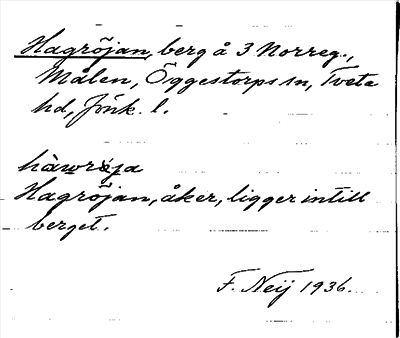 Hagröjan, berg å 3 Norreg.,
Målen, Öggestorps sn, Tveta
hd, Jönk. l.
hàwröja
Hagröjan, åker, ligger intill
berget.
F. Neij 1936.